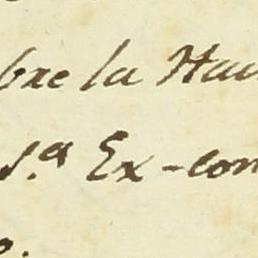 bre la Hau
S.ª Ex-con
o.